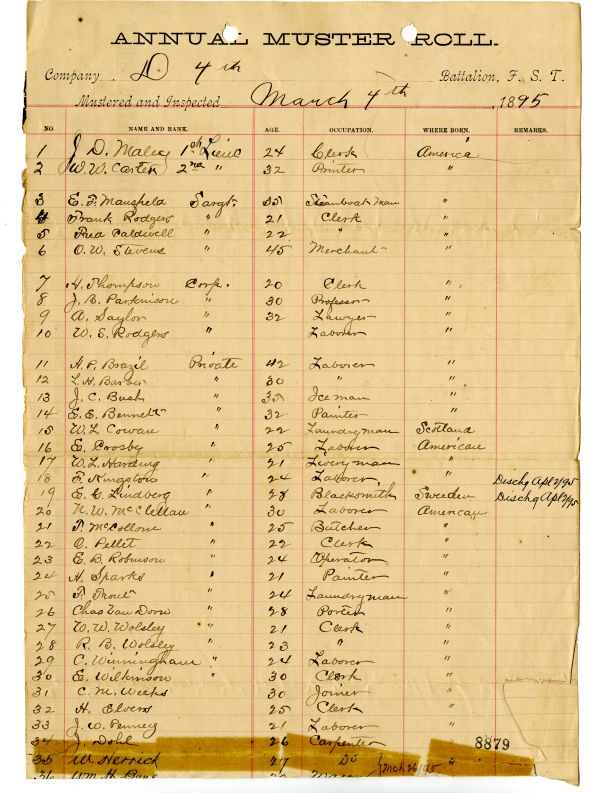 ANNUAL MUSTER ROLL.
Company D 4th Battalion, F. S. T.
Mustered and Inspected March 4th, 1895
NO. NAME AND RANK. AGE. OCCUPATION. WHERE BORN. REMARKS.
1 J. D. Maley 1st Lieut 24 Clerk America
2 W. W. Carter 2nd " 32 Printer "
3 E. F. Mansfield Sargt. 35 Steamboat Man "
4 Frank Rodgers " 21 Clerk "
5 Fred Caldwell " 22 " "
6 O. W. Stevens " 45 Merchant "
7 H. Thompson Corp. 20 Clerk "
8 J. B. Parkinson " 30 Professor "
9 A. Saylor " 32 Lawyer "
10 W. S. Rodgers " Laborer "
11 H. P. Brazil Private 42 Laborer "
12 L. H. Barber " 30 " "
13 J. C. Bush " 35 Iceman "
14 E. E. Bennett " 32 Painter "
15 W. L. Cowan " 22 Laundryman Scotland
16 E. Crosby " 25 Laborer American
17 W. L. Harding " 21 Liveryman "
18 F. Kingston " 24 Laborer " Dischg Apl 2/95
19 E. G. Lindberg " 28 Blacksmith Sweden Dischg Apl 2/95
20 N. W. McClellan " 30 Laborer American
21 T. McCollom " 25 Butcher "
22 O. Pellet " 22 Clerk "
23 E. B. Robinson " 24 Operator "
24 H. Sparks " 21 Painter "
25 T. Trout " 24 Laundryman "
26 Chas Van Dorn " 28 Porter "
27 W. W. Wolsley " 21 Clerk "
28 R. B. Wolsley " 23 " "
29 C. Winningham " 24 Laborer "
30 E. Wilkinson " 30 Clerk "
31 C. M. Weeks 30 Joiner "
32 H. Elvers 25 Clerk "
33 J. W. Penney 21 Laborer "
34 J. Dohl 26 Carpenter " 8879
35 W. Herrick 27 Do Mch 26/95
36 Wm. H.